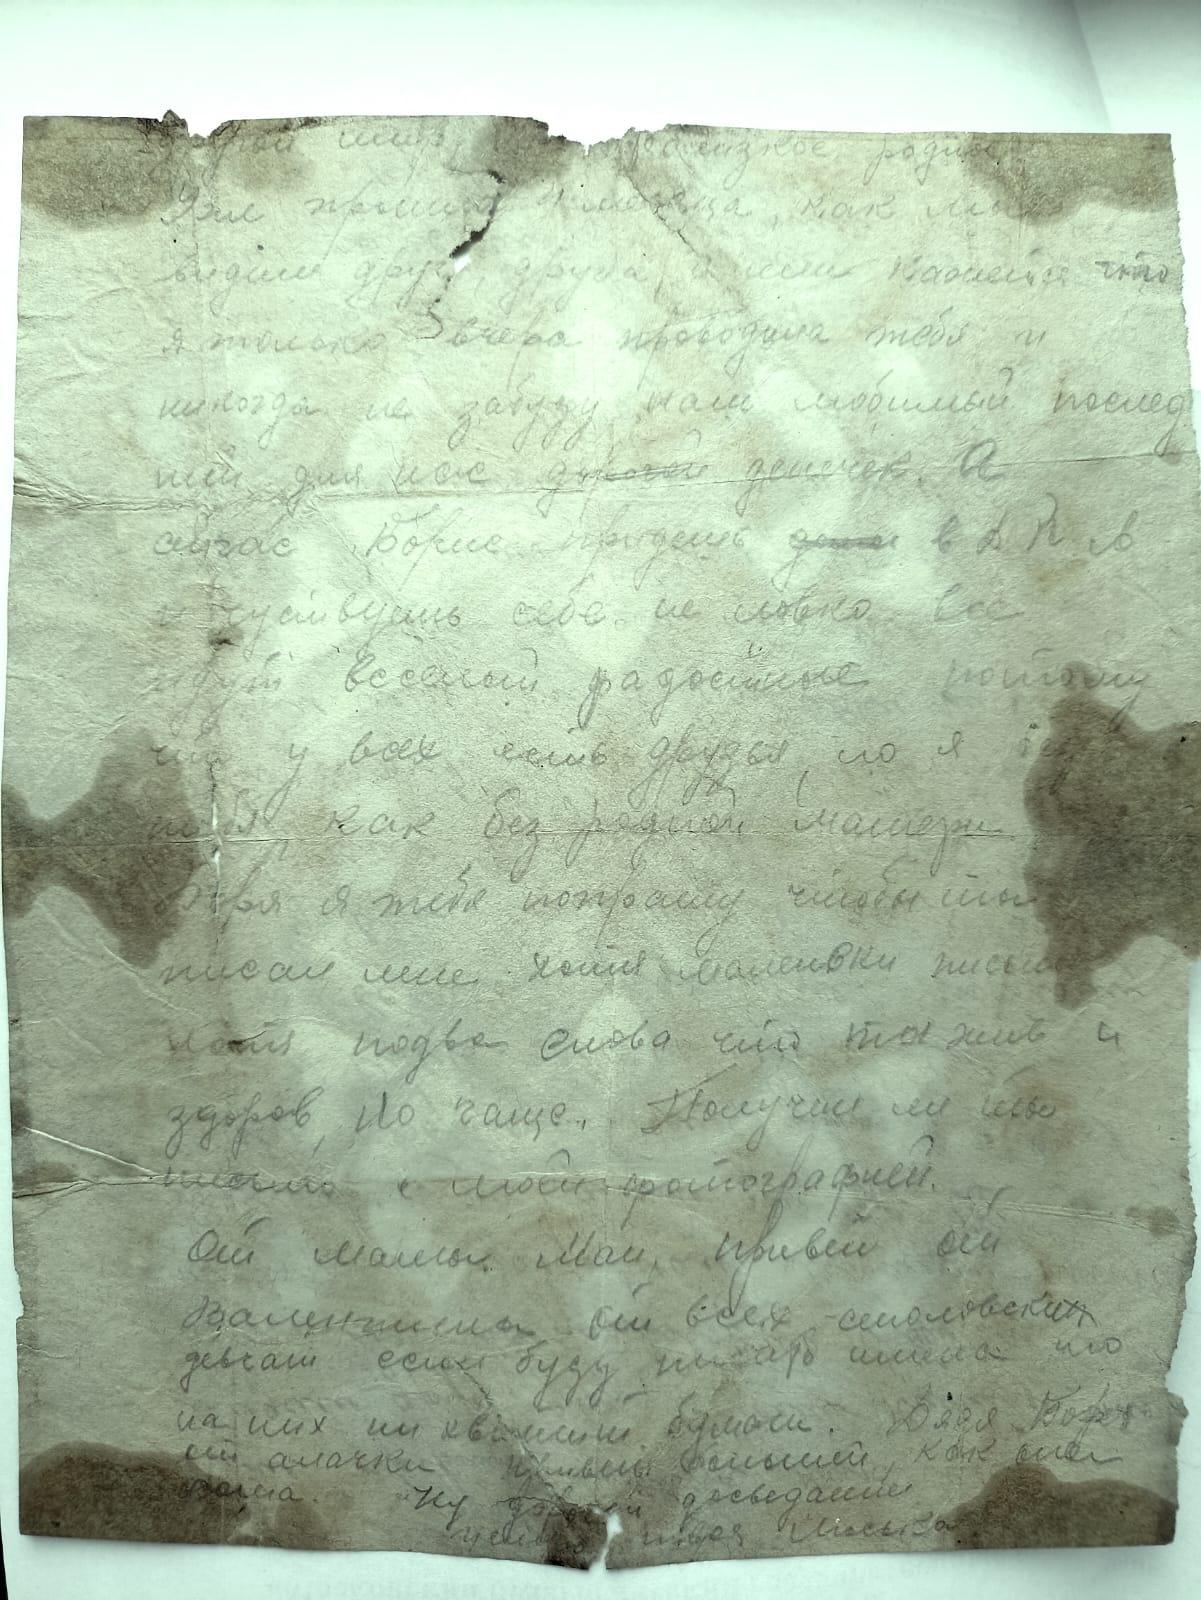 другой близкое родное
Уже прошли 4 месяца, как мы
видели друг друга, и мне кажется что
я только вчера проводила тебя и
никогда не забуду наш любимый послед
ний для нас дорогой денечек. А
сичас Борис придешь в ДК
и чуствуешь себе не ловко все
идут веселый радостные потому
что у всех есть друзья, но я
тебя как без родной матери
Боря я тебя попрашу чтобы ты
писал мне хотя маленьки
хотя подва слова что ты жив и
здоров, но чаще. Получил ли ты
письмо с моей фотографией.
От мамы Маи, привет от
Валентины от всех столовских
девчат если буду писать имена то
на них ни хватит бумаги. Дядя Боря
от алачки привет большой, как она
ваша. Ну дорогой досведания
целую твоя